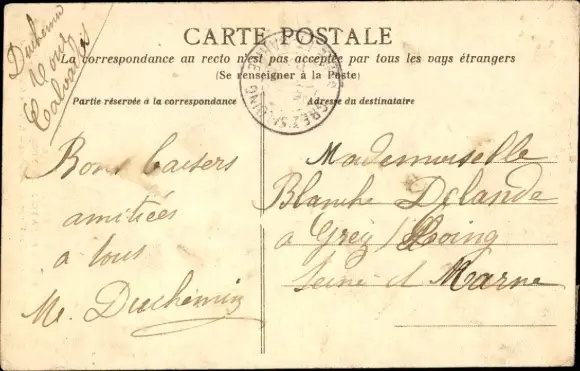 Duchemin
Calvados
CARTE POSTALE
La correspondance au recto n'est pas acceptée par tous les pays étrangers
(Se renseigner à la Poste)
Partie réservée à la correspondance
Adresse du destinataire
Bons baisers
amitiées
a tous
Me. Duchemin
Mademoiselle
Blanche Delande
a Grèz / Loing
Seine et Marne